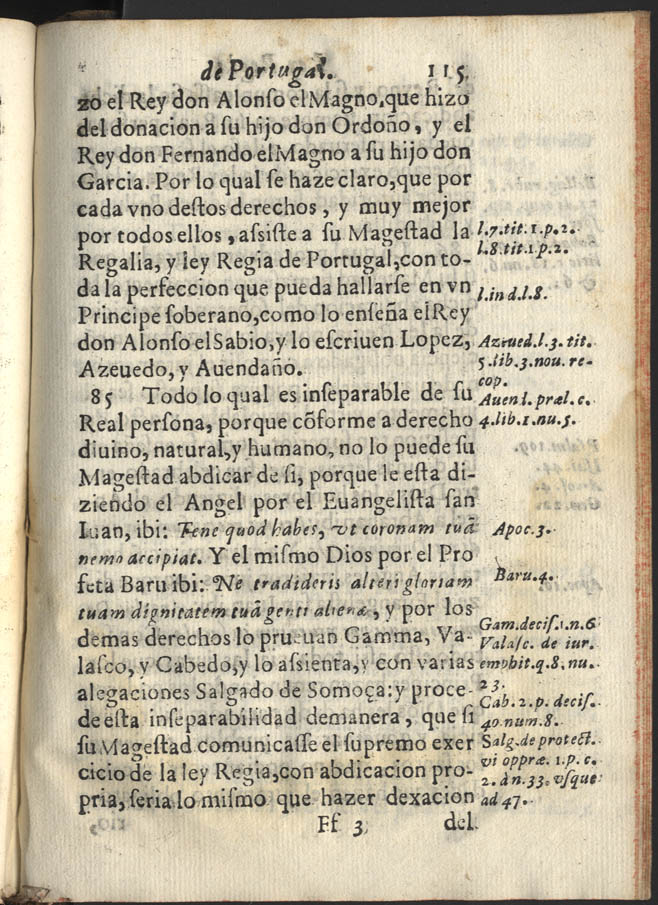 de Portugal. 115.
zo el Rey don Alonſo el Magno, que hizo
del donacion a ſu hijo don Ordoño, y el
Rey don Fernando el Magno a ſu hijo don
Garcia. Por lo qual ſe haze claro, que por
cada vno deſtos derechos, y muy mejor
por todos ellos, aſsiſte a ſu Mageſtad la
Regalia, y ley Regia de Portugal, con to-
da la perfeccion que pueda hallarſe en vn
Principe ſoberano, como lo enſeña el Rey
don Alonſo el Sabio, y lo eſcriuen Lopez,
Azeuedo, y Auendaño.
85 Todo lo qual es inſeparable de ſu
Real perſona, porque cõforme a derecho
diuino, natural, y humano, no lo puede ſu
Mageſtad abdicar de ſi, porque le eſta di-
ziendo el Angel por el Euangeliſta ſan
Iuan, ibi: Tene quod habes, vt coronam tuã
nemo accipiat. Y el miſmo Dios por el Pro
feta Baru ibi: Ne tradideris alteri gloriam
tuam dignitatem tuã genti alienæ, y por los
demas derechos lo prueuan Gamma, Va-
laſco, y Cabedo, y lo aſsienta, y con varias
alegaciones Salgado de Somoça: y proce-
de eſta inſeparabilidad demanera, que ſi
ſu Mageſtad comunicaſſe el ſupremo exer
cicio de la ley Regia, con abdicacion pro-
pria, ſeria lo miſmo que hazer dexacion
Ff 3 del
l.7.tit.1.p.2.
l.8.tit.1.p.2.
l.in d.l.8.
Azeued.l.3.tit.
5.lib.3.nou.re-
cop.
Auend.præl.c.
4.lib.1.nu.5.
Apoc.3.
Baru.4.
Gam.deciſ.1.n.6
Valaſc. de iur.
emphit.q.8.nu.
23.
Cab.2.p.deciſ.
40.num.8.
Salg.de protect.
vi oppræ.1.p.c.
2. à n.33.vſque
ad 47.